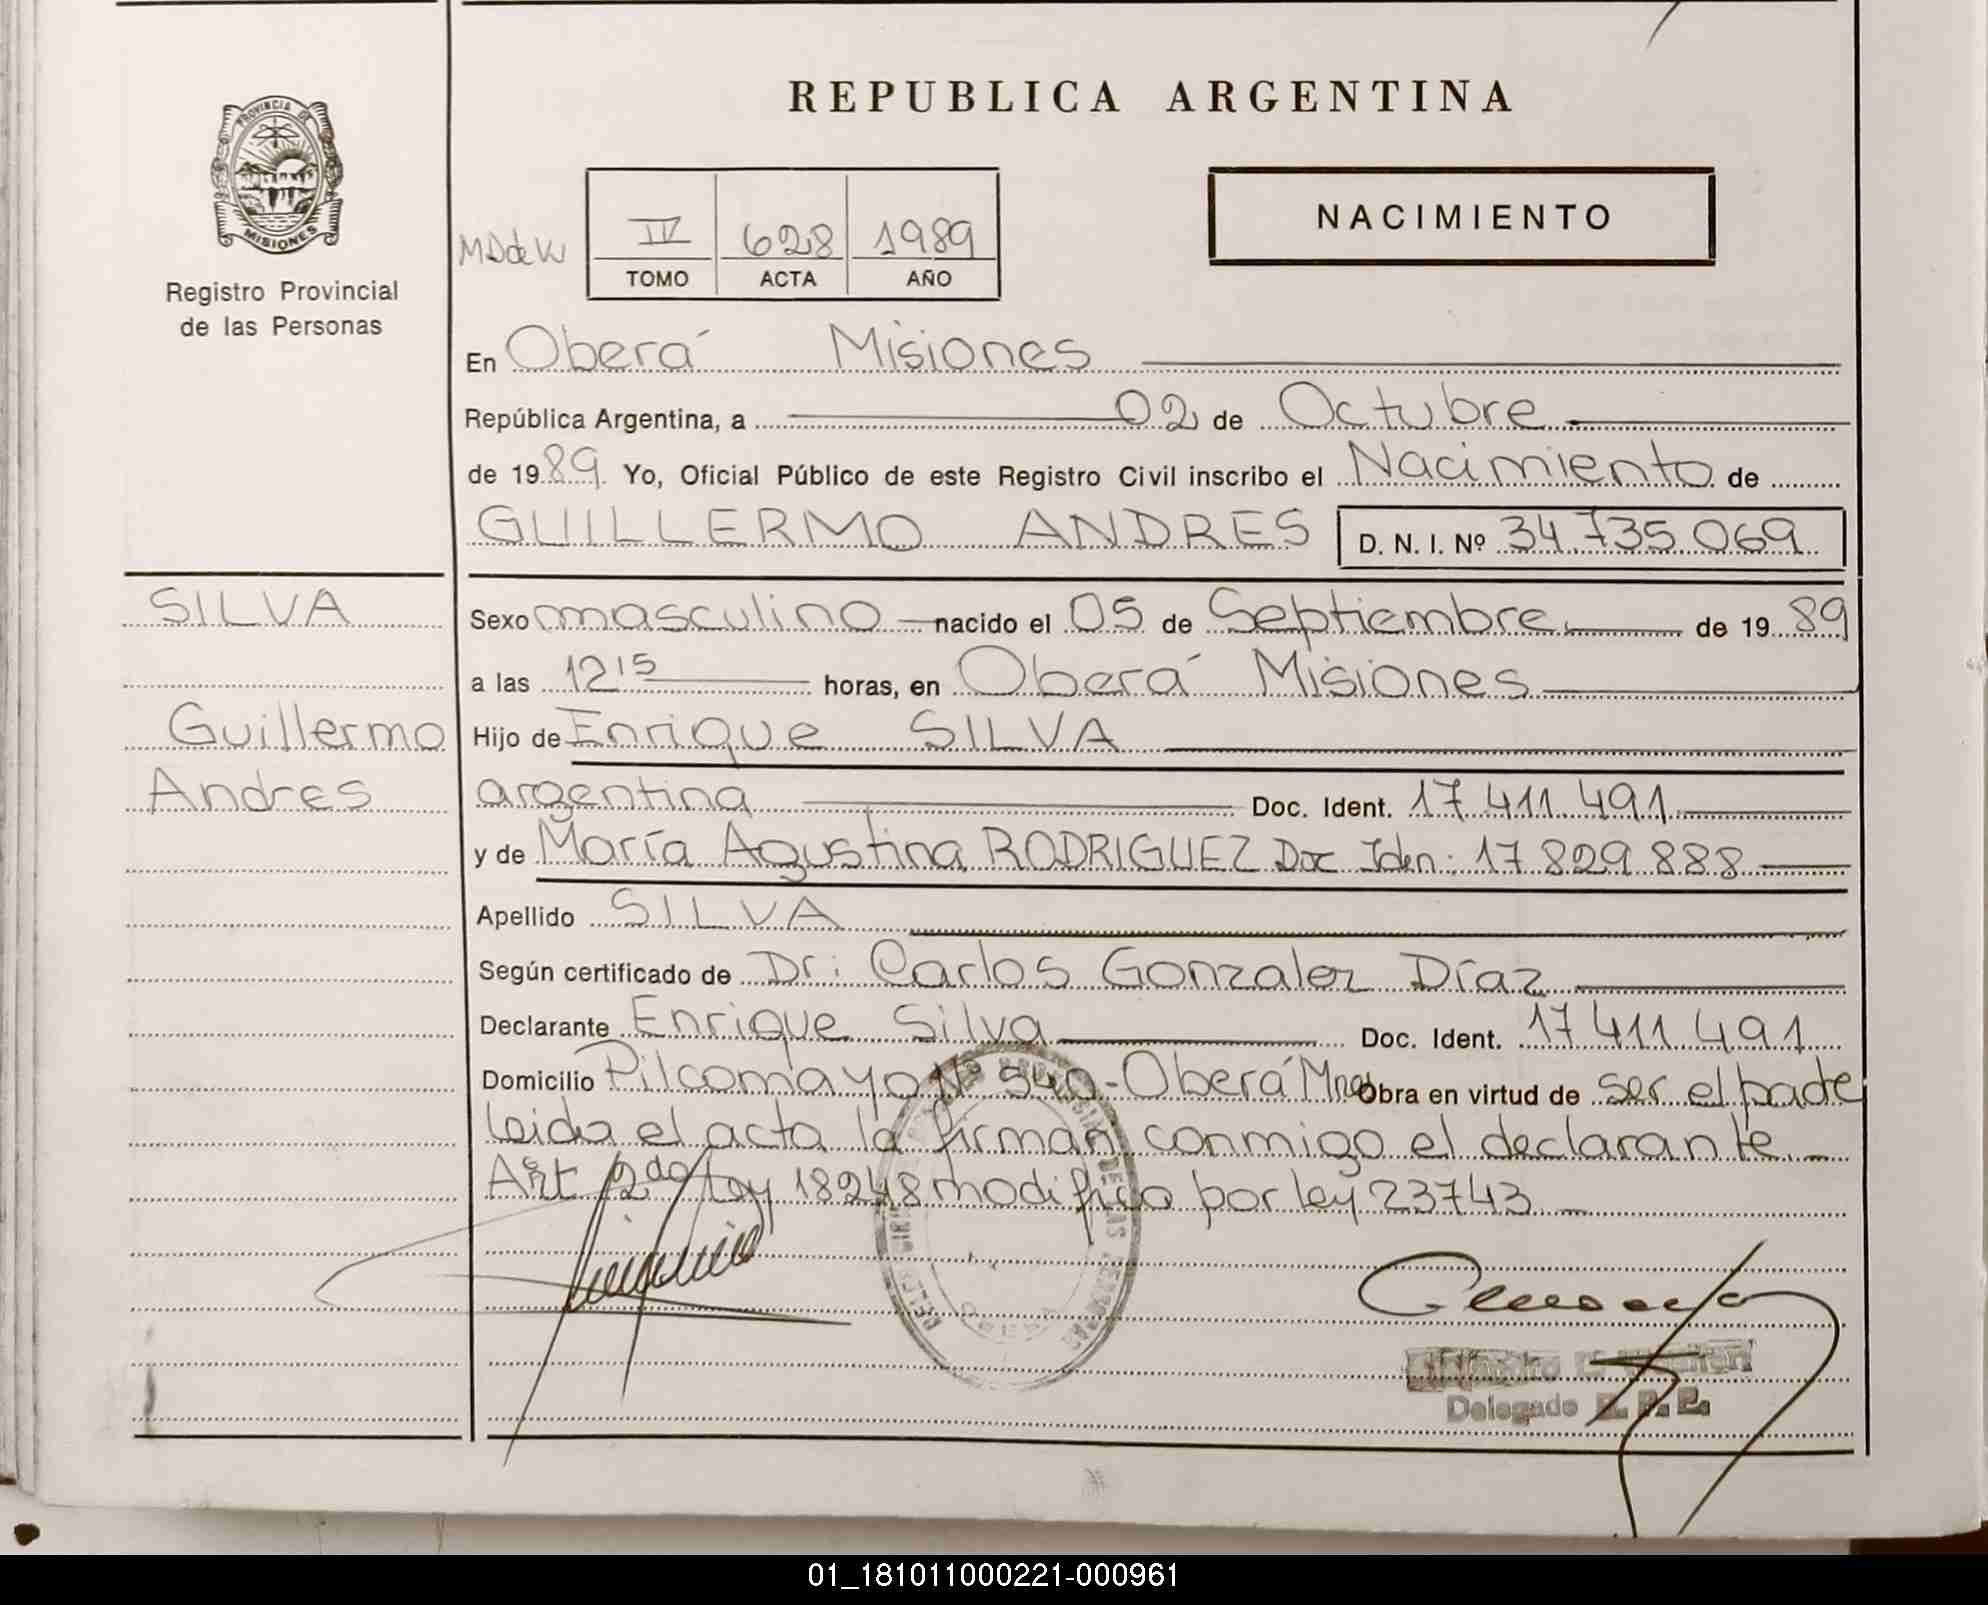 REPUBLICA ARGENTINA
PROVINCIA DE
MISIONES
Registro Provincial
de las Personas
NACIMIENTO
IV 628 1989
TOMO ACTA AÑO
En Oberá Misiones
República Argentina, a 02 de Octubre
de 1989 Yo, Oficial Público de este Registro Civil inscribo el Nacimiento de
GUILLERMO ANDRES D. N. I. Nº 34.735.069
SILVA
Guillermo
Andres
Sexo masculino nacido el 05 de Septiembre de 1989
a las 12 15 horas, en Oberá Misiones
Hijo de Enrique SILVA
argentina Doc. Ident. 17.411.491
y de María Agustina RODRIGUEZ Doc Iden: 17.829.888
Apellido SILVA
Según certificado de Dr: Carlos Gonzalez Díaz
Declarante Enrique Silva Doc. Ident. 17.411.491
Domicilio Pilcomayo Nº 540 - Oberá Mnes Obra en virtud de ser el padre
leida el acta la firman conmigo el declarante
Art 2do ley 18248 modifica por ley 23743
Delegado R. P. P.
01_181011000221-000961